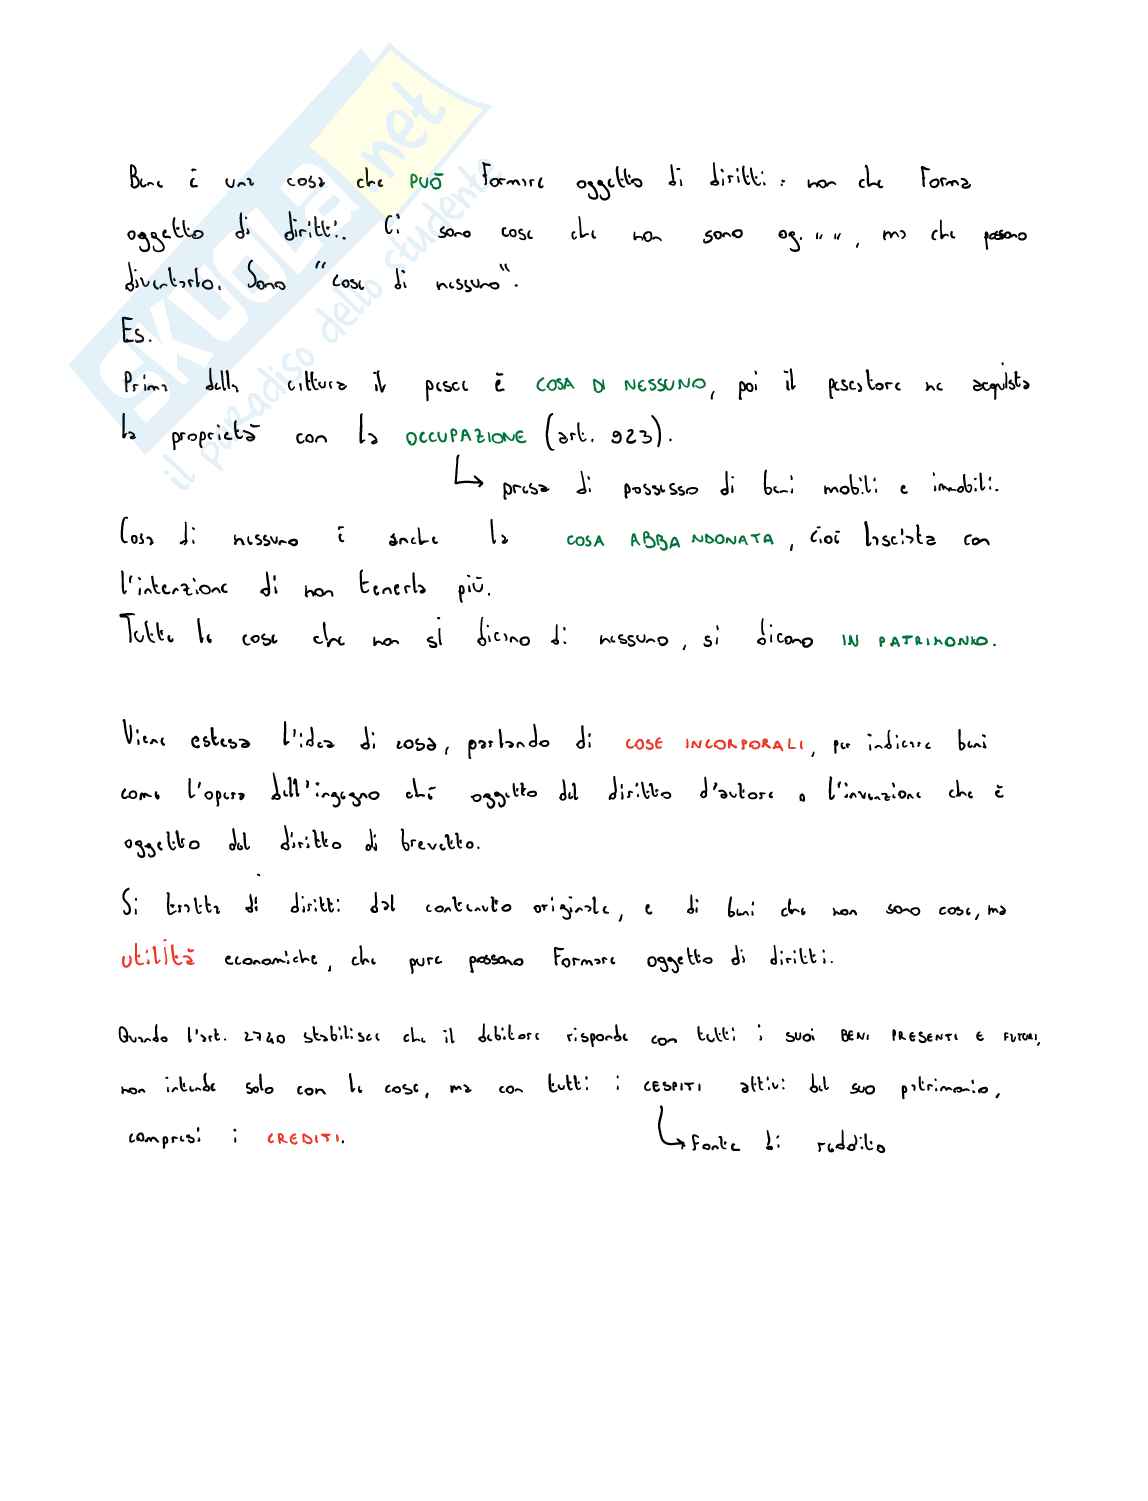 SKUOLA.net
il paradiso dello studente
Bene è una cosa che PUÒ formare oggetto di diritti: non che forma
oggetto di diritti. Ci sono cose che non sono og. " ", ma che possono
diventarlo. Sono "cose di nessuno".
Es.
Prima della cattura il pesce è COSA DI NESSUNO, poi il pescatore ne acquista
la proprietà con la OCCUPAZIONE (art. 923).
↳ presa di possesso di beni mobili e immobili.
Cosa di nessuno è anche la COSA ABBANDONATA, cioè lasciata con
l'intenzione di non tenerla più.
Tutte le cose che non si dicano di nessuno, si dicono IN PATRIMONIO.
Viene estesa l'idea di cosa, parlando di COSE INCORPORALI, per indicare beni
come l'opera dell'ingegno ch'è oggetto del diritto d'autore o l'invenzione che è
oggetto del diritto di brevetto.
Si tratta di diritti dal contenuto originale, e di beni che non sono cose, ma
utilità economiche, che pure possono formare oggetto di diritti.
Quando l'art. 2740 stabilisce che il debitore risponde con tutti i suoi BENI PRESENTI E FUTURI,
non intende solo con le cose, ma con tutti i CESPITI attivi del suo patrimonio,
compresi i CREDITI.
↳ fonte di reddito